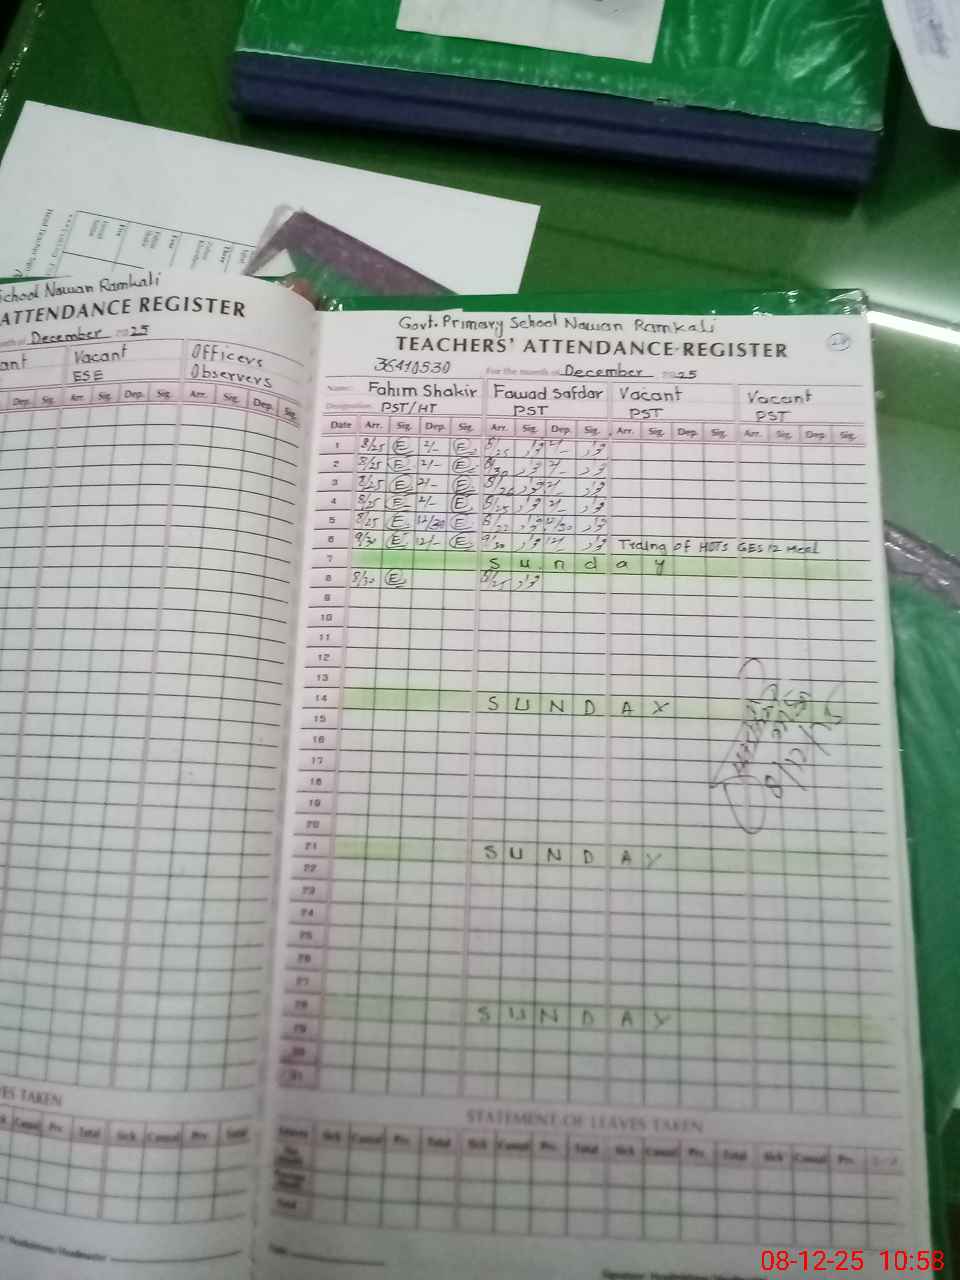 School Nawan Ramkali
ATTENDANCE REGISTER
December 2025
Vacant Officers
ESE Observers
Dep. Sig. Arr. Sig. Dep. Sig. Arr. Sig. Dep. Sig.
LEAVES TAKEN
Casual Prv. Total Sick Casual Prv. Total
Govt. Primary School Nawan Ramkali
TEACHERS' ATTENDANCE REGISTER
For the month of December 2025
Name: Fahim Shakir Fawad Safdar Vacant Vacant
Designation: PST/HT PST PST PST
Date Arr. Sig. Dep. Sig. Arr. Sig. Dep. Sig. Arr. Sig. Dep. Sig. Arr. Sig. Dep. Sig.
1 8/25 E 2/- E 8/25 2/-
2 8/25 E 2/- E 8/30 2/-
3 8/25 E 2/- E 2/-
4 8/25 E 2/- E 8/25 2/-
5 8/25 E 12/30 E 12/30
6 9/30 E 12/- E 9/30 12/- of HOTS GES 12
7 Sunday
8 8/30 E 8/25
9
10
11
12
13
14 SUNDAY
15
16
17
18
19
20
21 SUNDAY
22
23
24
25
26
27
28 SUNDAY
29
30
31
8/12/25
STATEMENT OF LEAVES TAKEN
Leaves Sick Casual Prv. Total Sick Casual Prv. Total Sick Casual Prv. Total Sick Casual Prv.
Total
08-12-25 10:58